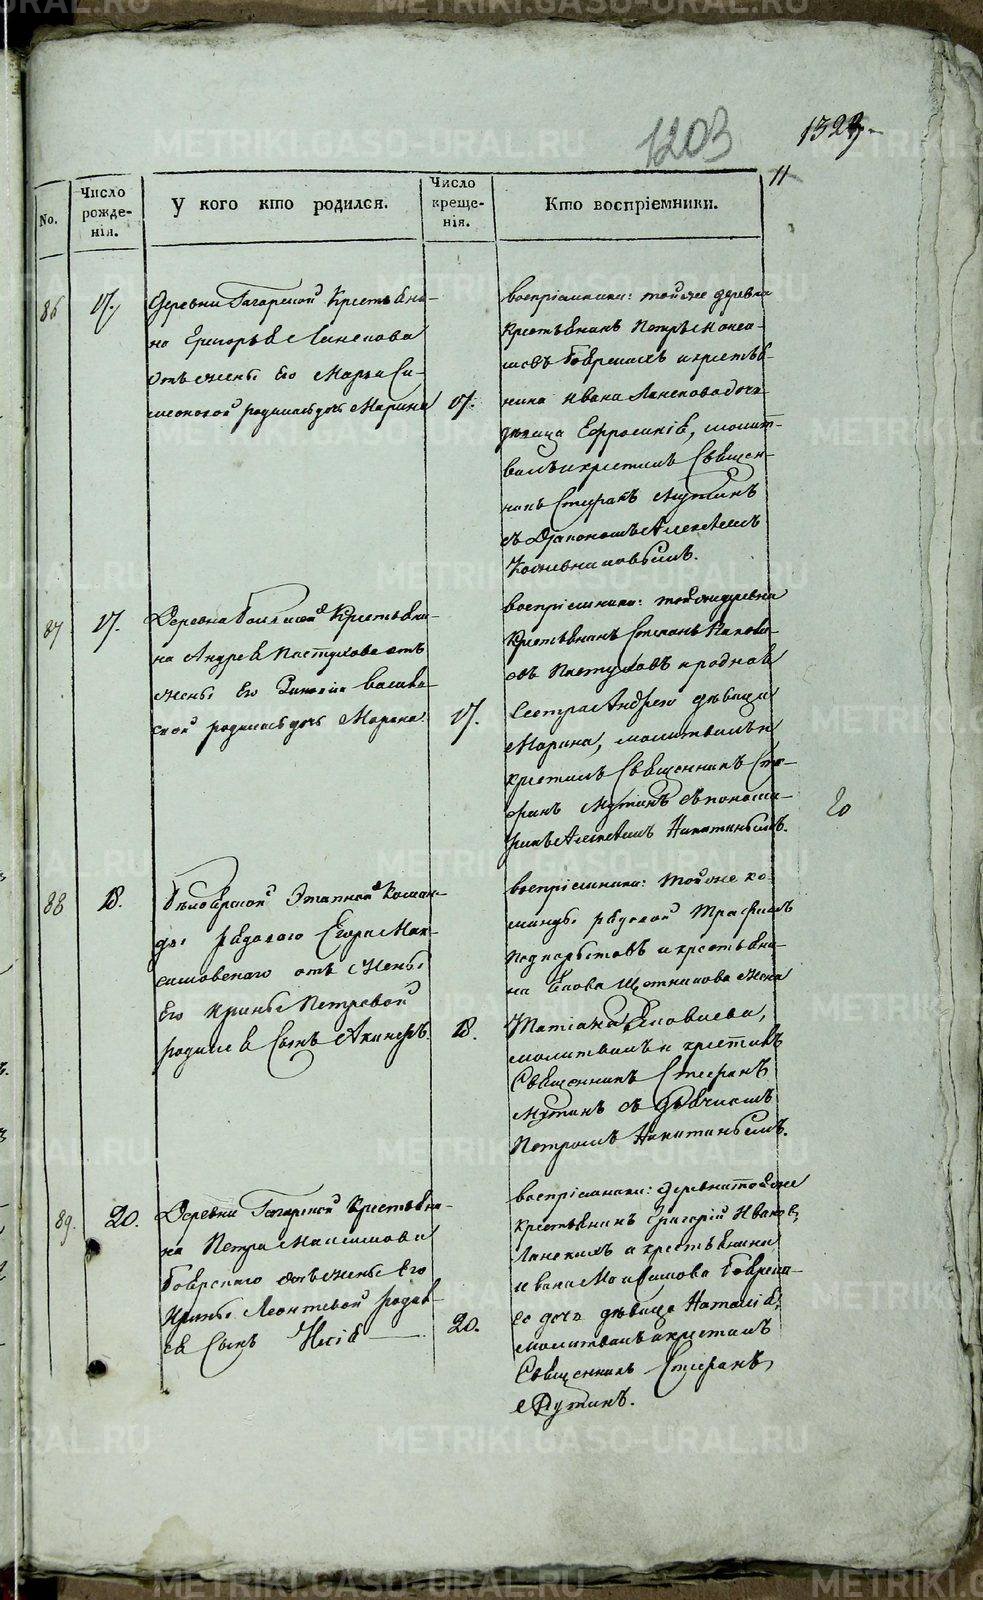 METRIKI.GASO-URAL.RU
1203
1323
11
No.
Число рожде-нія.
У кого кто родился.
Число креще-нія.
Кто воспріемники.
86
17.
Деревни Гагарской Крестьяни-
на Григорья Ланскова
отъ жены Его Марьи Си-
меоновой родилась дочь Марина
17.
воспріемники: тойже деревни
Крестьянинъ Петръ Макси-
мовъ Боярскихъ и крестья-
нина Ивана Ланскова дочь
девица Ефросинія, молит-
вилъ и крестилъ Священ-
никъ Стефанъ Мутинъ
съ Дьякономъ Алексеемъ
87
17.
Деревни Крестьяни-
на Андрея Пастухова отъ
жены Его Васильев-
ской родилась дочь Марина.
17.
воспріемники: тойже деревни
Крестьянинъ Степанъ
Пастуховъ и родная
Сестра Андрея девица
Марина, молитвилъ и
крестилъ Священникъ Сте-
фанъ Мутинъ съ понома-
ремъ Алексеемъ Никитинымъ.
20
88
18.
Белоярской Этапной Коман-
ды рядового Егора Мак-
симовскаго отъ жены
Его Ирины Петровой
родился Сынъ
18.
воспріемники: тойже ко-
манды рядовой Трофимъ
и крестьяни-
на Щетникова жена
Татіана
молитвилъ и крестилъ
Священникъ Стефанъ
Мутинъ съ Дьячкомъ
Петромъ Никитинымъ.
89.
20.
Деревни Гагарской Крестьяни-
на Петра Максимова
Боярскаго отъ жены Его
Ирины Леонтьевой родил-
ся Сынъ Илія
20.
воспріемники: деревни тойже
крестьянинъ Григорій Иванов
Ланскихъ и крестьянина
Ивана Максимова Боярска-
го дочь девица Наталія,
молитвилъ и крестилъ
Священникъ Стефанъ
Мутинъ.